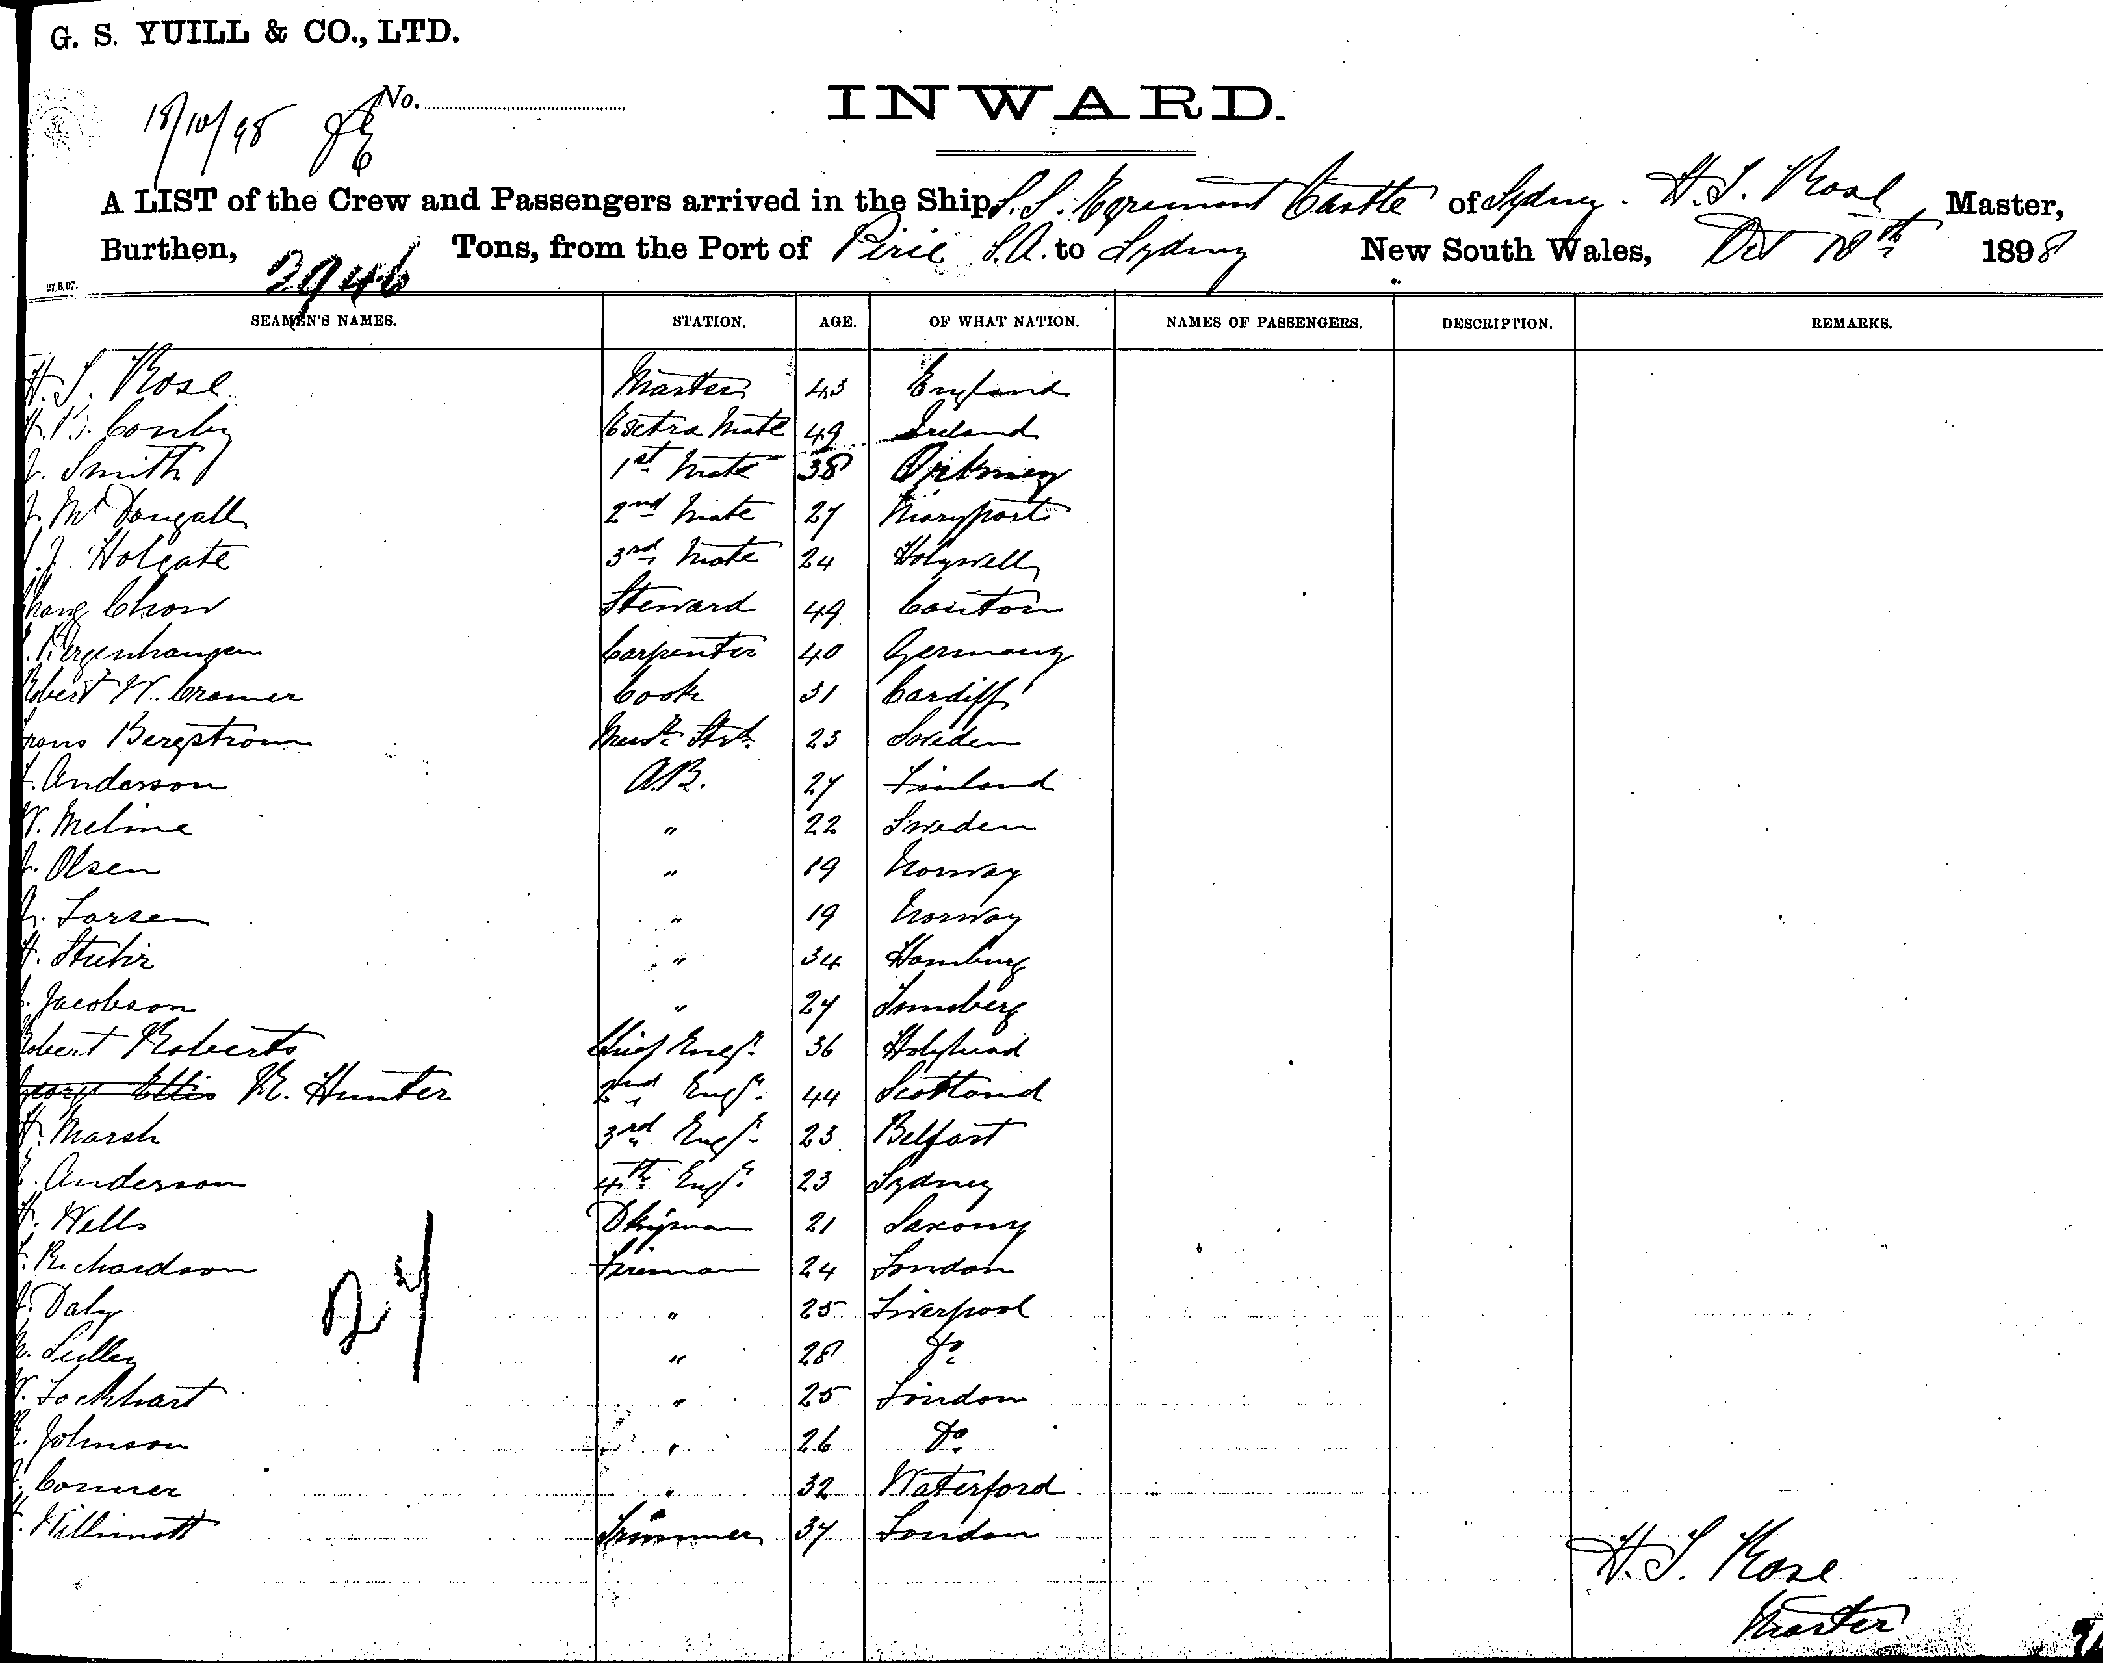 G. S. YUILL & CO., LTD.
18/10/98 No.
INWARD.
A LIST of the Crew and Passengers arrived in the Ship S.S. Egremont Castle of Sydney. H. S. Rose Master,
Burthen, 2946 Tons, from the Port of Pirie S.A. to Sydney New South Wales, Oct 18th 1898
SEAMEN'S NAMES. STATION. AGE. OF WHAT NATION. NAMES OF PASSENGERS. DESCRIPTION. REMARKS.
H. S. Rose Master 43 England
Conby Extra Mate 49 Ireland
J. Smith 1st Mate 38 Orkney
J. McDougall 2nd Mate 27 Maryport
J. Holgate 3rd Mate 24 Holywell
Chow Steward 49 Canton
Bergenhausen Carpenter 40 Germany
Robert W. Cramer Cook 31 Cardiff
Frans Bergstrom Mess Std. 23 Sweden
Anderson A.B. 27 Finland
W. Meline " 22 Sweden
Olsen " 19 Norway
Larsen " 19 Norway
H. Stuhr " 34 Hamburg
Jacobson " 27
Robert Roberts Chief Engr. 36 Holyhead
George Ellis R. Hunter 2nd Engr. 44 Scotland
H. Marsh 3rd Engr. 23 Belfast
Anderson 4th Engr. 23 Sydney
Wells Dkyman 21 Saxony
Richardson Fireman 24 London
Daly " 25 Liverpool
" 28 Do.
W. Lockhart " 25 London
Johnson " 26 Do.
Conner " 32 Waterford
Willimott Trimmer 37 London
27
H. S. Rose
Master